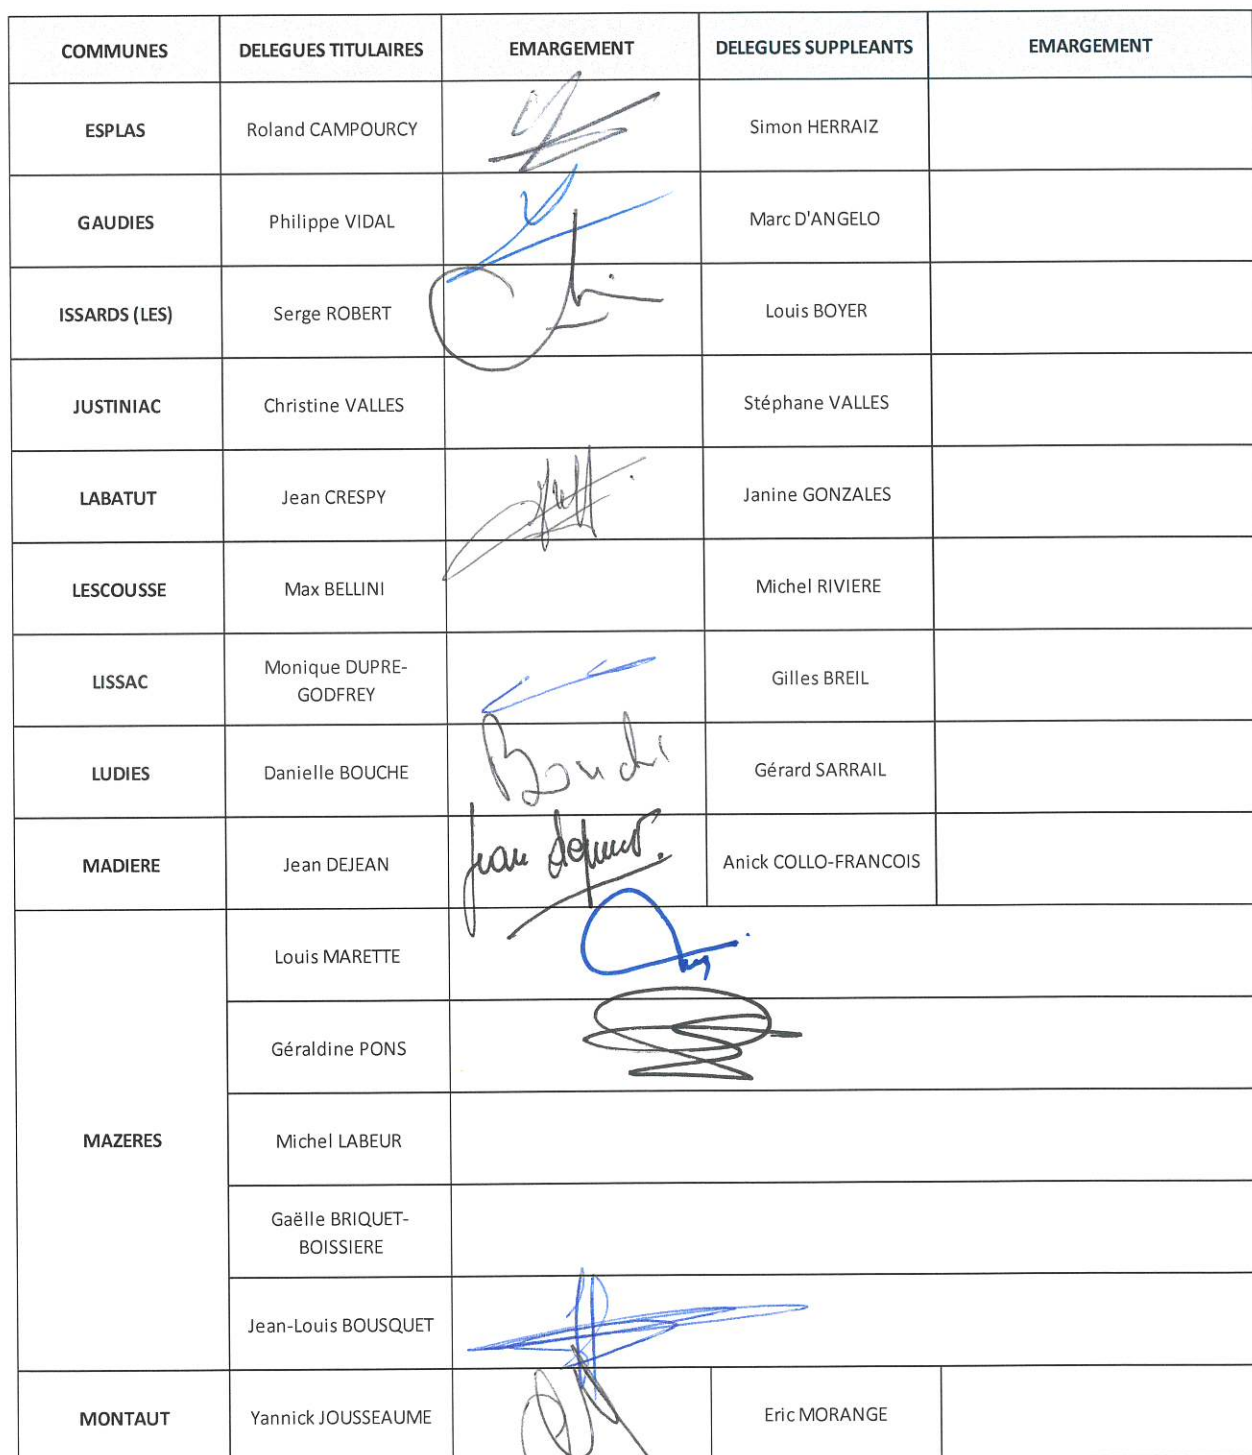 COMMUNES DELEGUES TITULAIRES EMARGEMENT DELEGUES SUPPLEANTS EMARGEMENT
ESPLAS Roland CAMPOURCY Simon HERRAIZ
GAUDIES Philippe VIDAL Marc D'ANGELO
ISSARDS (LES) Serge ROBERT Louis BOYER
JUSTINIAC Christine VALLES Stéphane VALLES
LABATUT Jean CRESPY Janine GONZALES
LESCOUSSE Max BELLINI Michel RIVIERE
LISSAC Monique DUPRE-
GODFREY Gilles BREIL
LUDIES Danielle BOUCHE Bouche Gérard SARRAIL
MADIERE Jean DEJEAN Jean Dejean Anick COLLO-FRANCOIS
MAZERES
Louis MARETTE
Géraldine PONS
Michel LABEUR
Gaëlle BRIQUET-
BOISSIERE
Jean-Louis BOUSQUET
MONTAUT Yannick JOUSSEAUME Eric MORANGE